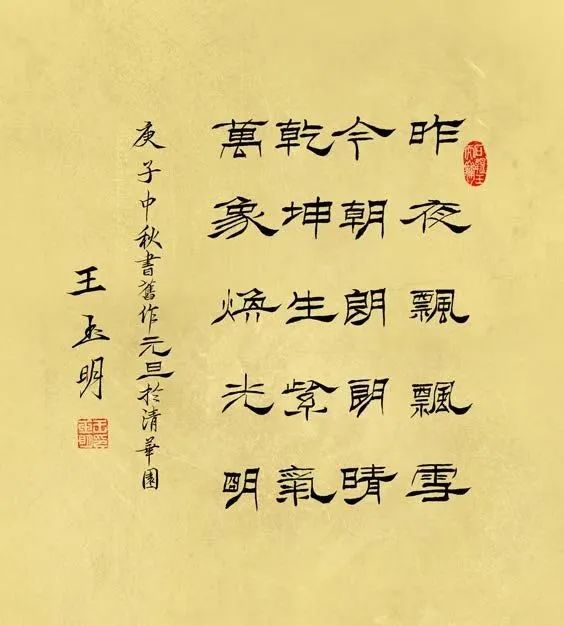 昨夜飄飄雪
今朝朗朗晴
乾坤生紫氣
萬象煥光明
庚子中秋書舊作元旦於清華園
王玉明